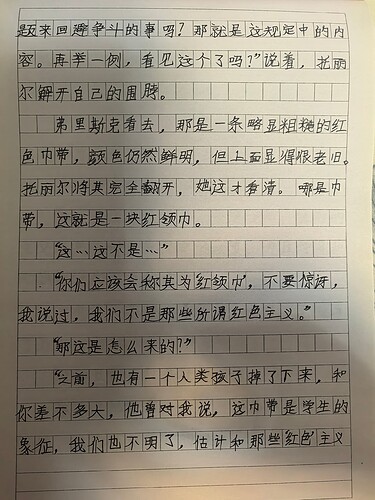 题来回避争斗的事吗？那就是这规定中的内
容。再举一例，看见这个了吗？”说着，托丽
尔解开自己的围脖。
弗里斯克看去，那是一条略显粗糙的红
色巾带，颜色仍然鲜明，但上面显得很老旧。
托丽尔将其完全翻开，她这才看清。哪是巾
带，这就是一块红领巾。
“这…这不是…”
“你们应该会称其为‘红领巾’，不要惊讶，
我说过，我们不是那些所谓红色主义。”
“那这是怎么来的？”
“之前，也有一个人类孩子掉了下来，和
你差不多大，他曾对我说，这巾带是学生的
象征，我们也不明了，估计和那些‘红色’主义